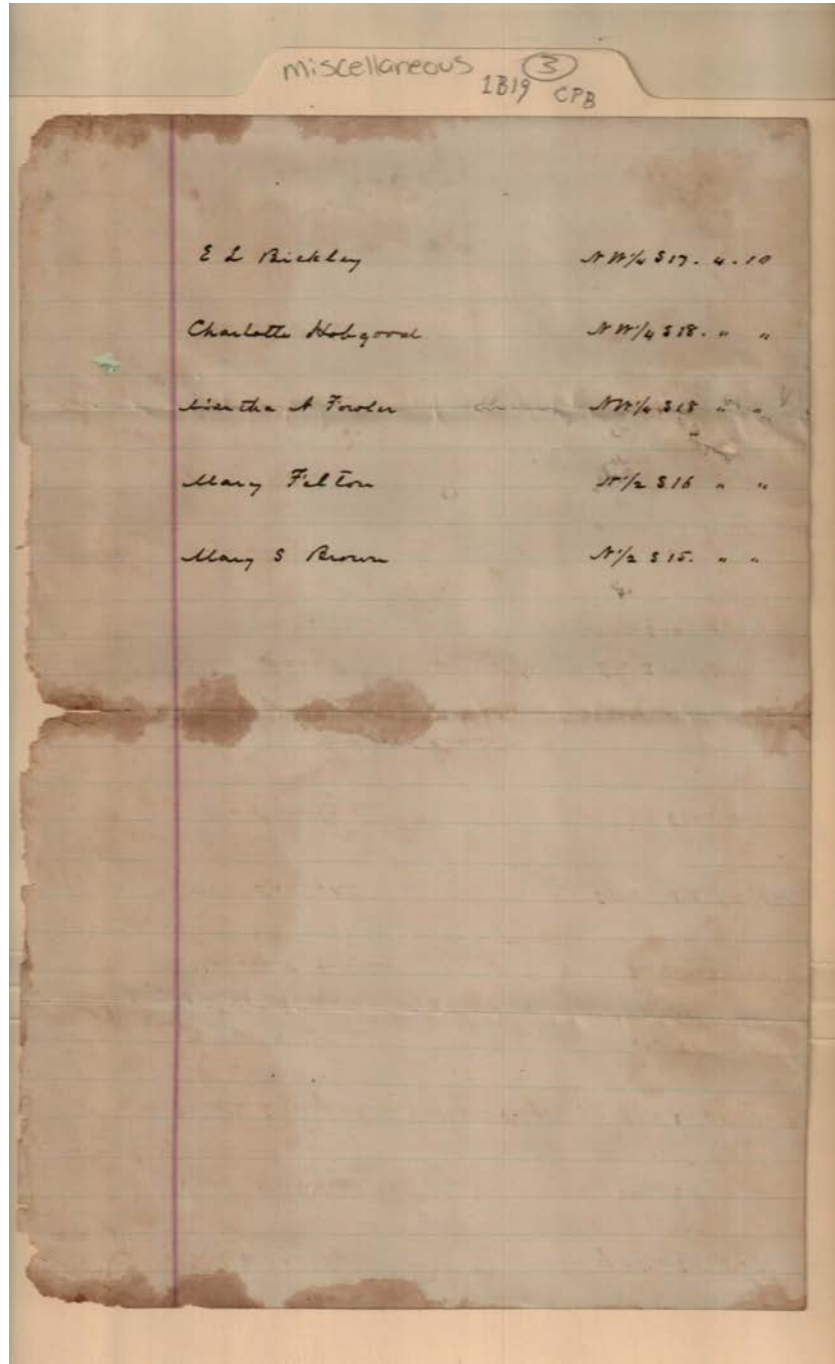 miscellaneous 1B19 ③ CPB
E L Bickley N W 1/4 S 17. 4. 10
Charlotte Hobgood N W 1/4 S 18. " "
Martha A Fowler N W 1/4 S 18 " "
Mary Felton N 1/2 S 16 " "
Mary S Brown N 1/2 S 15. " "